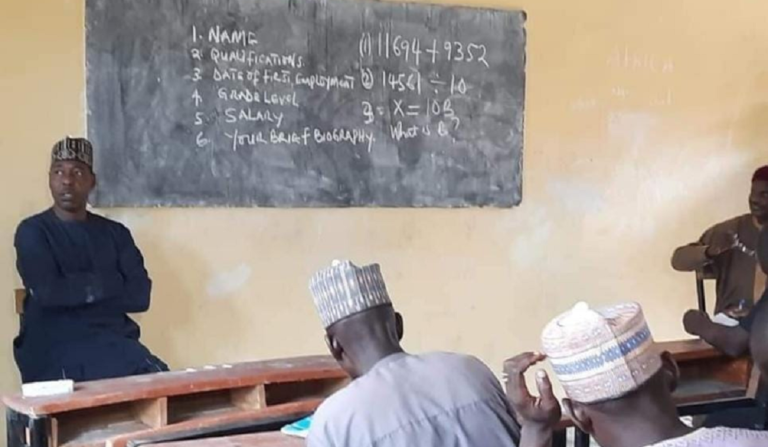 1. NAME
2 QUALIFICATIONS
3. DATE OF FIRST, EMPLOYMENT
4. GRADE LEVEL
5. SALARY
6. YOUR BRIEF BIOGRAPHY.
(1) 11694 + 9352
(2) 14561 ÷ 10
3 = X = 10B,
What is B?